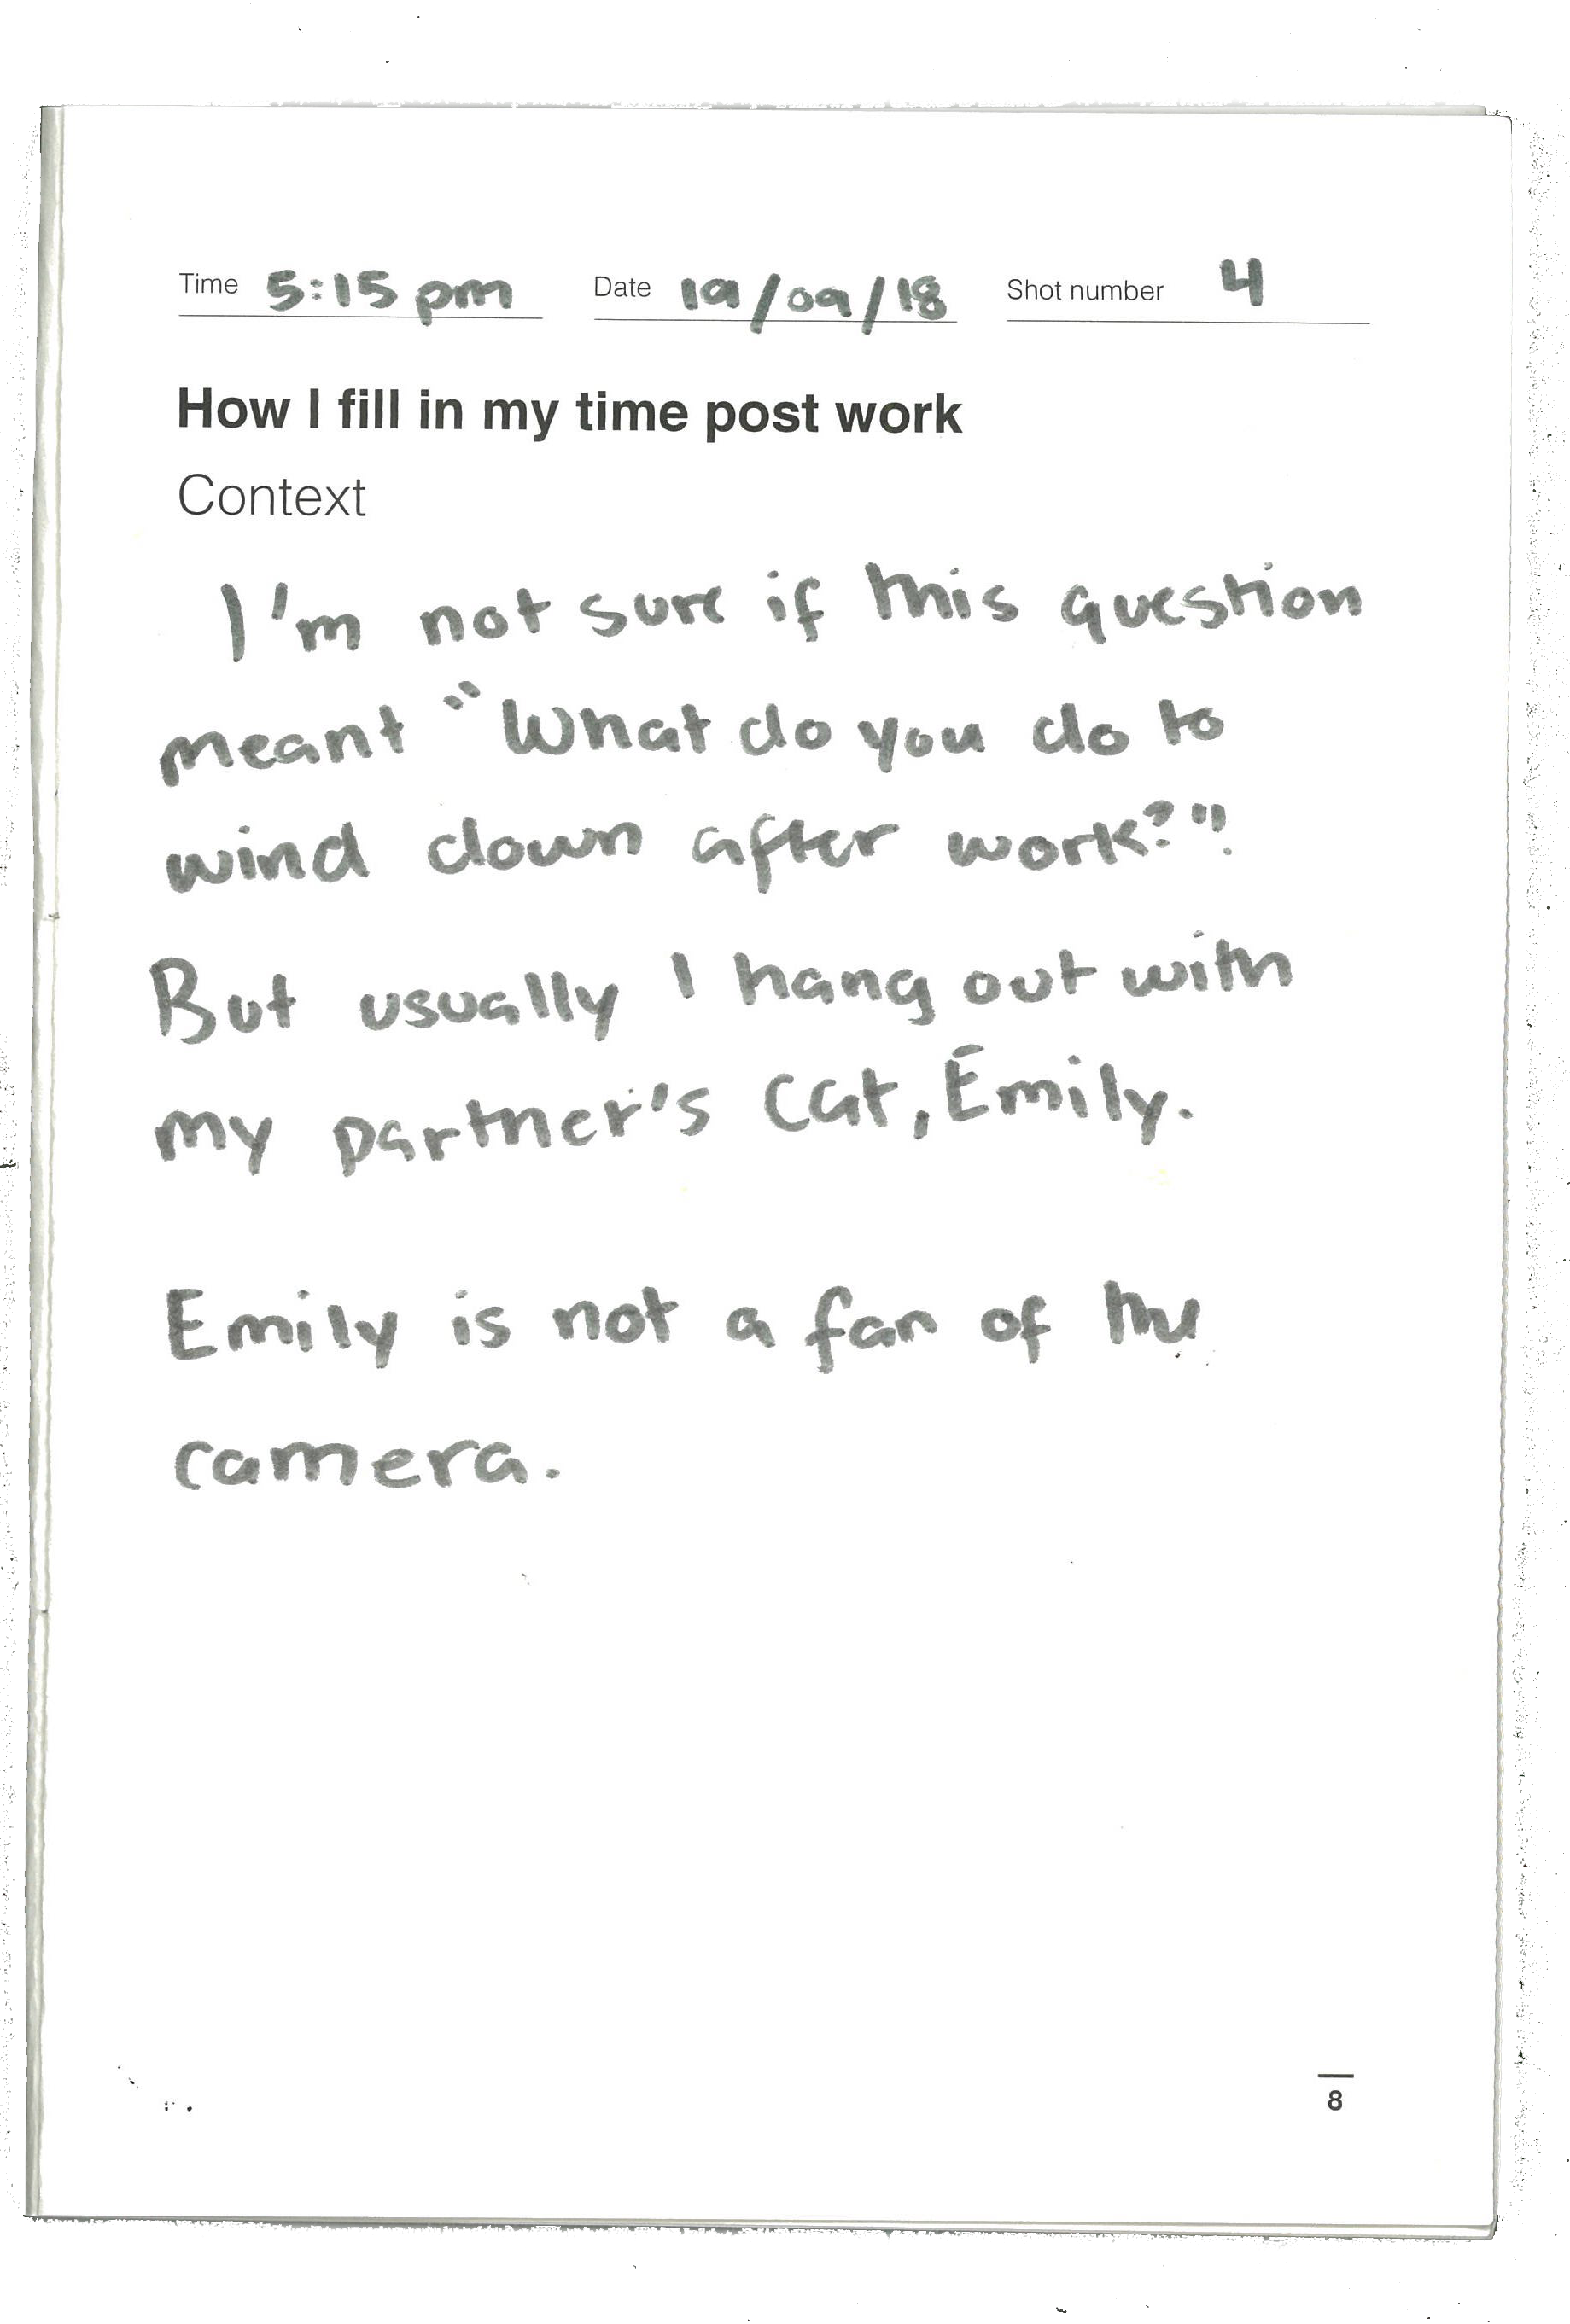 Time 5:15 pm Date 19/09/18 Shot number 4
How I fill in my time post work
Context
I'm not sure if this question
meant "What do you do to
wind down after work?".
But usually I hang out with
my partner's cat, Emily.
Emily is not a fan of the
camera.
8